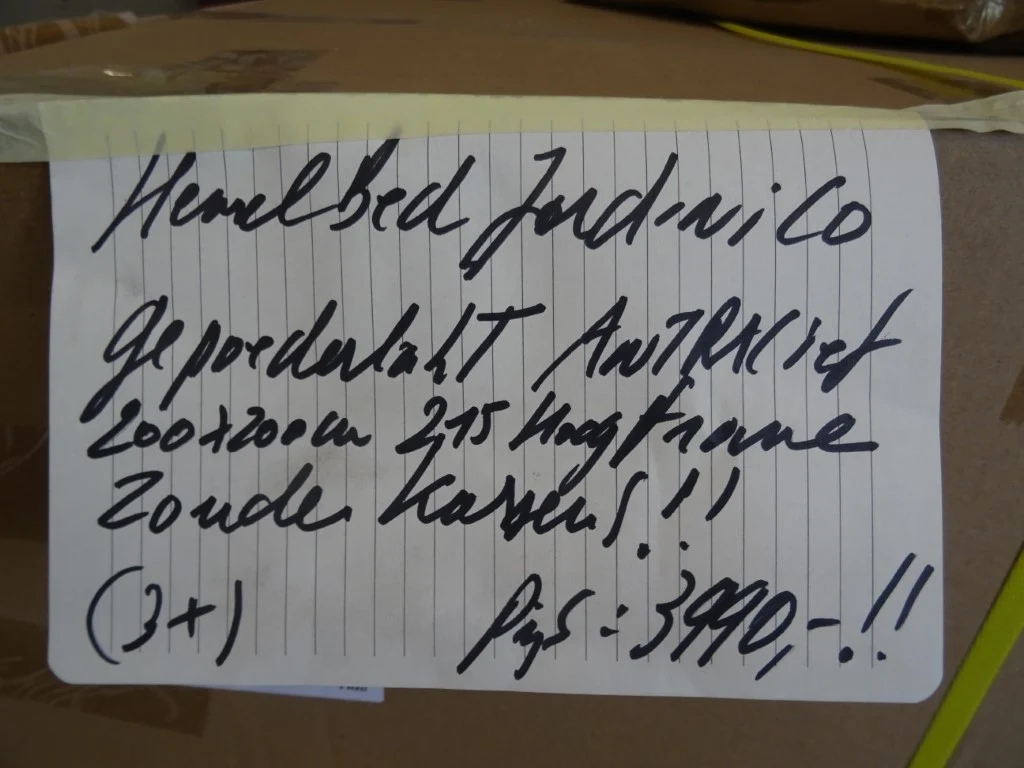 HemelBed Jardinico
gepoederlakt AnTRAciet
200x200cm 2,15 Hoog frame
Zonder Kussens!!
(3+) Prijs: 3990,-!!